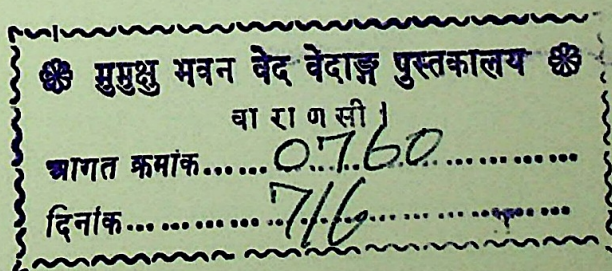 ❀ मुमुक्षु भवन वेद वेदाङ्ग पुस्तकालय ❀
वा रा ण सी ।
आगत क्रमांक......0760..................
दिनांक............7/6..................